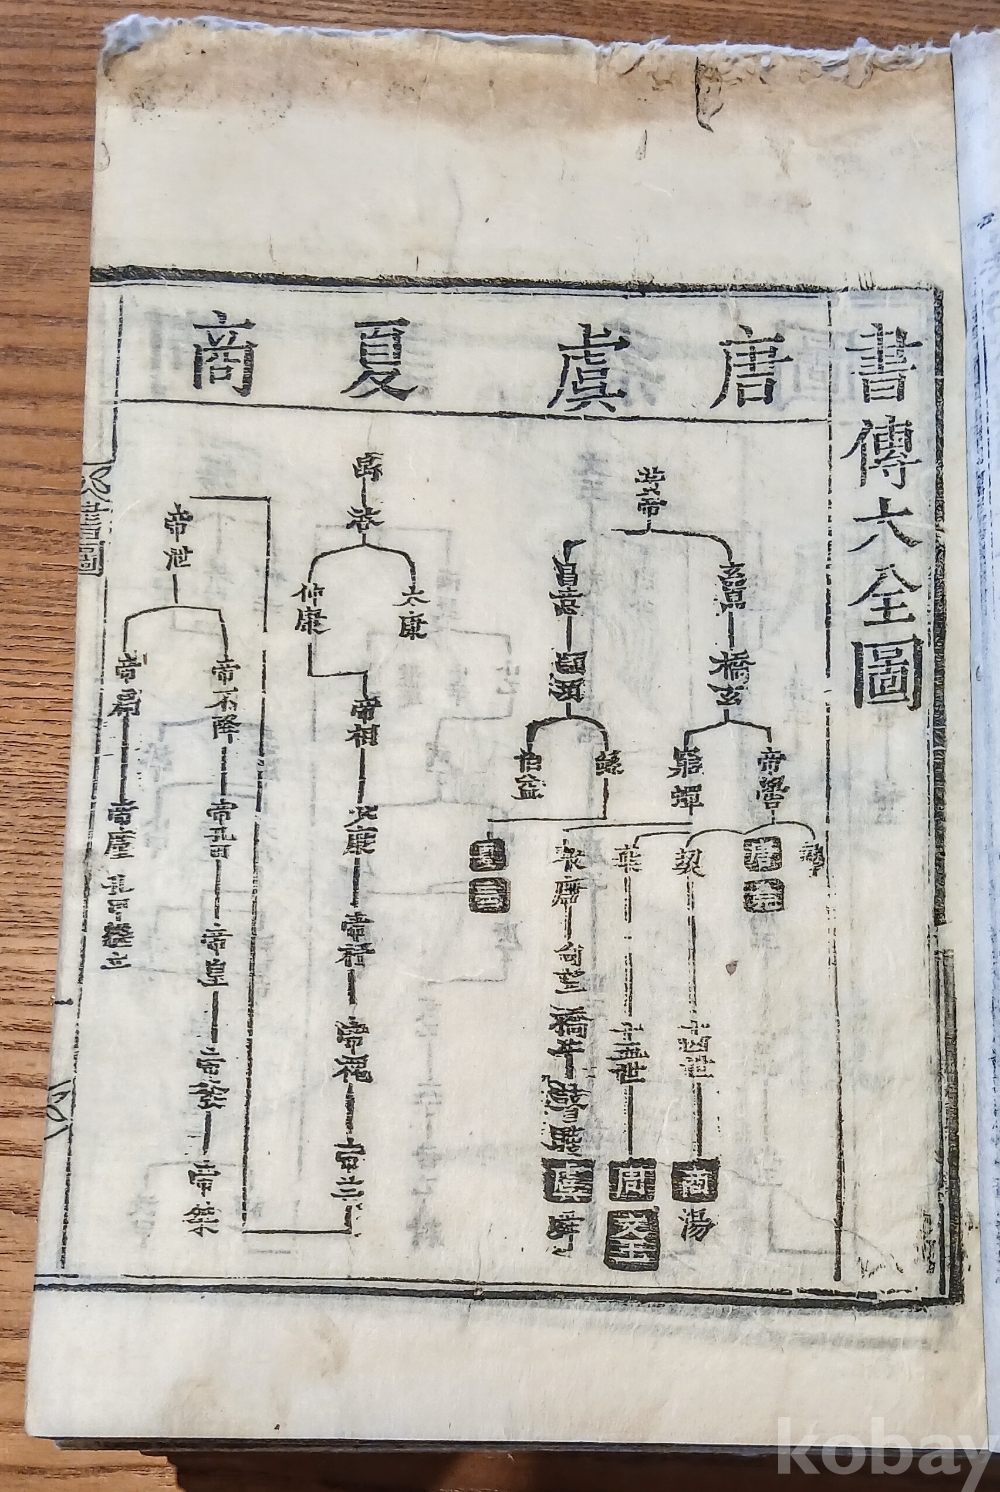 書傳大全圖
唐
虞
夏
商
黃帝
玄囂
昌意
橋玄
顓頊
帝嚳
窮蟬
鯀
伯益
摯
唐堯
契
十四世
商湯
棄
十五世
周文王
敬康
句望
橋牛
瞽瞍
虞舜
夏禹
禹
啓
太康
仲康
帝相
少康
帝杼
帝槐
帝芒
帝泄
帝不降
帝孔甲
帝皇
帝發
帝桀
帝扃
帝廑
孔甲繼立
書圖
kobay